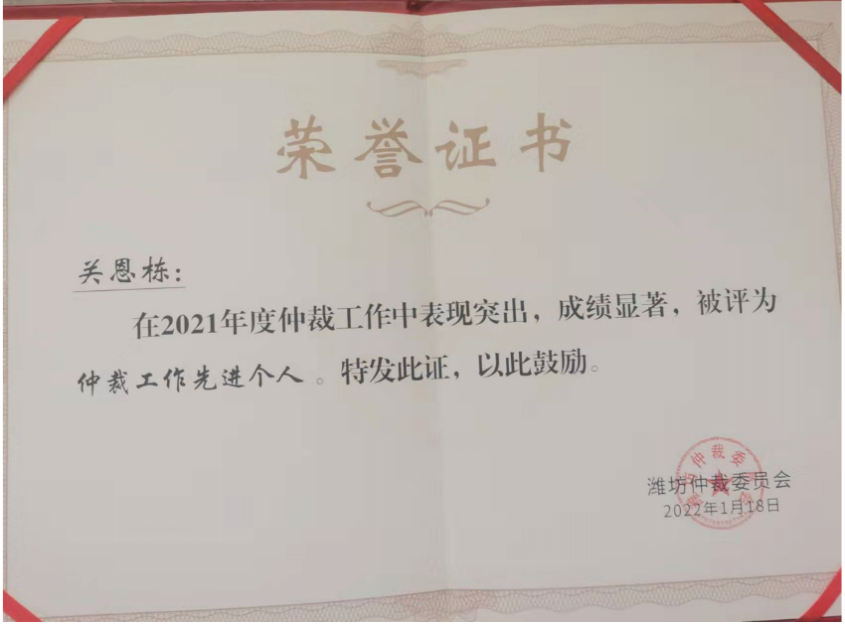 荣誉证书
关恩栋：
在2021年度仲裁工作中表现突出，成绩显著，被评为
仲裁工作先进个人。特发此证，以此鼓励。
潍坊仲裁委员会
2022年1月18日